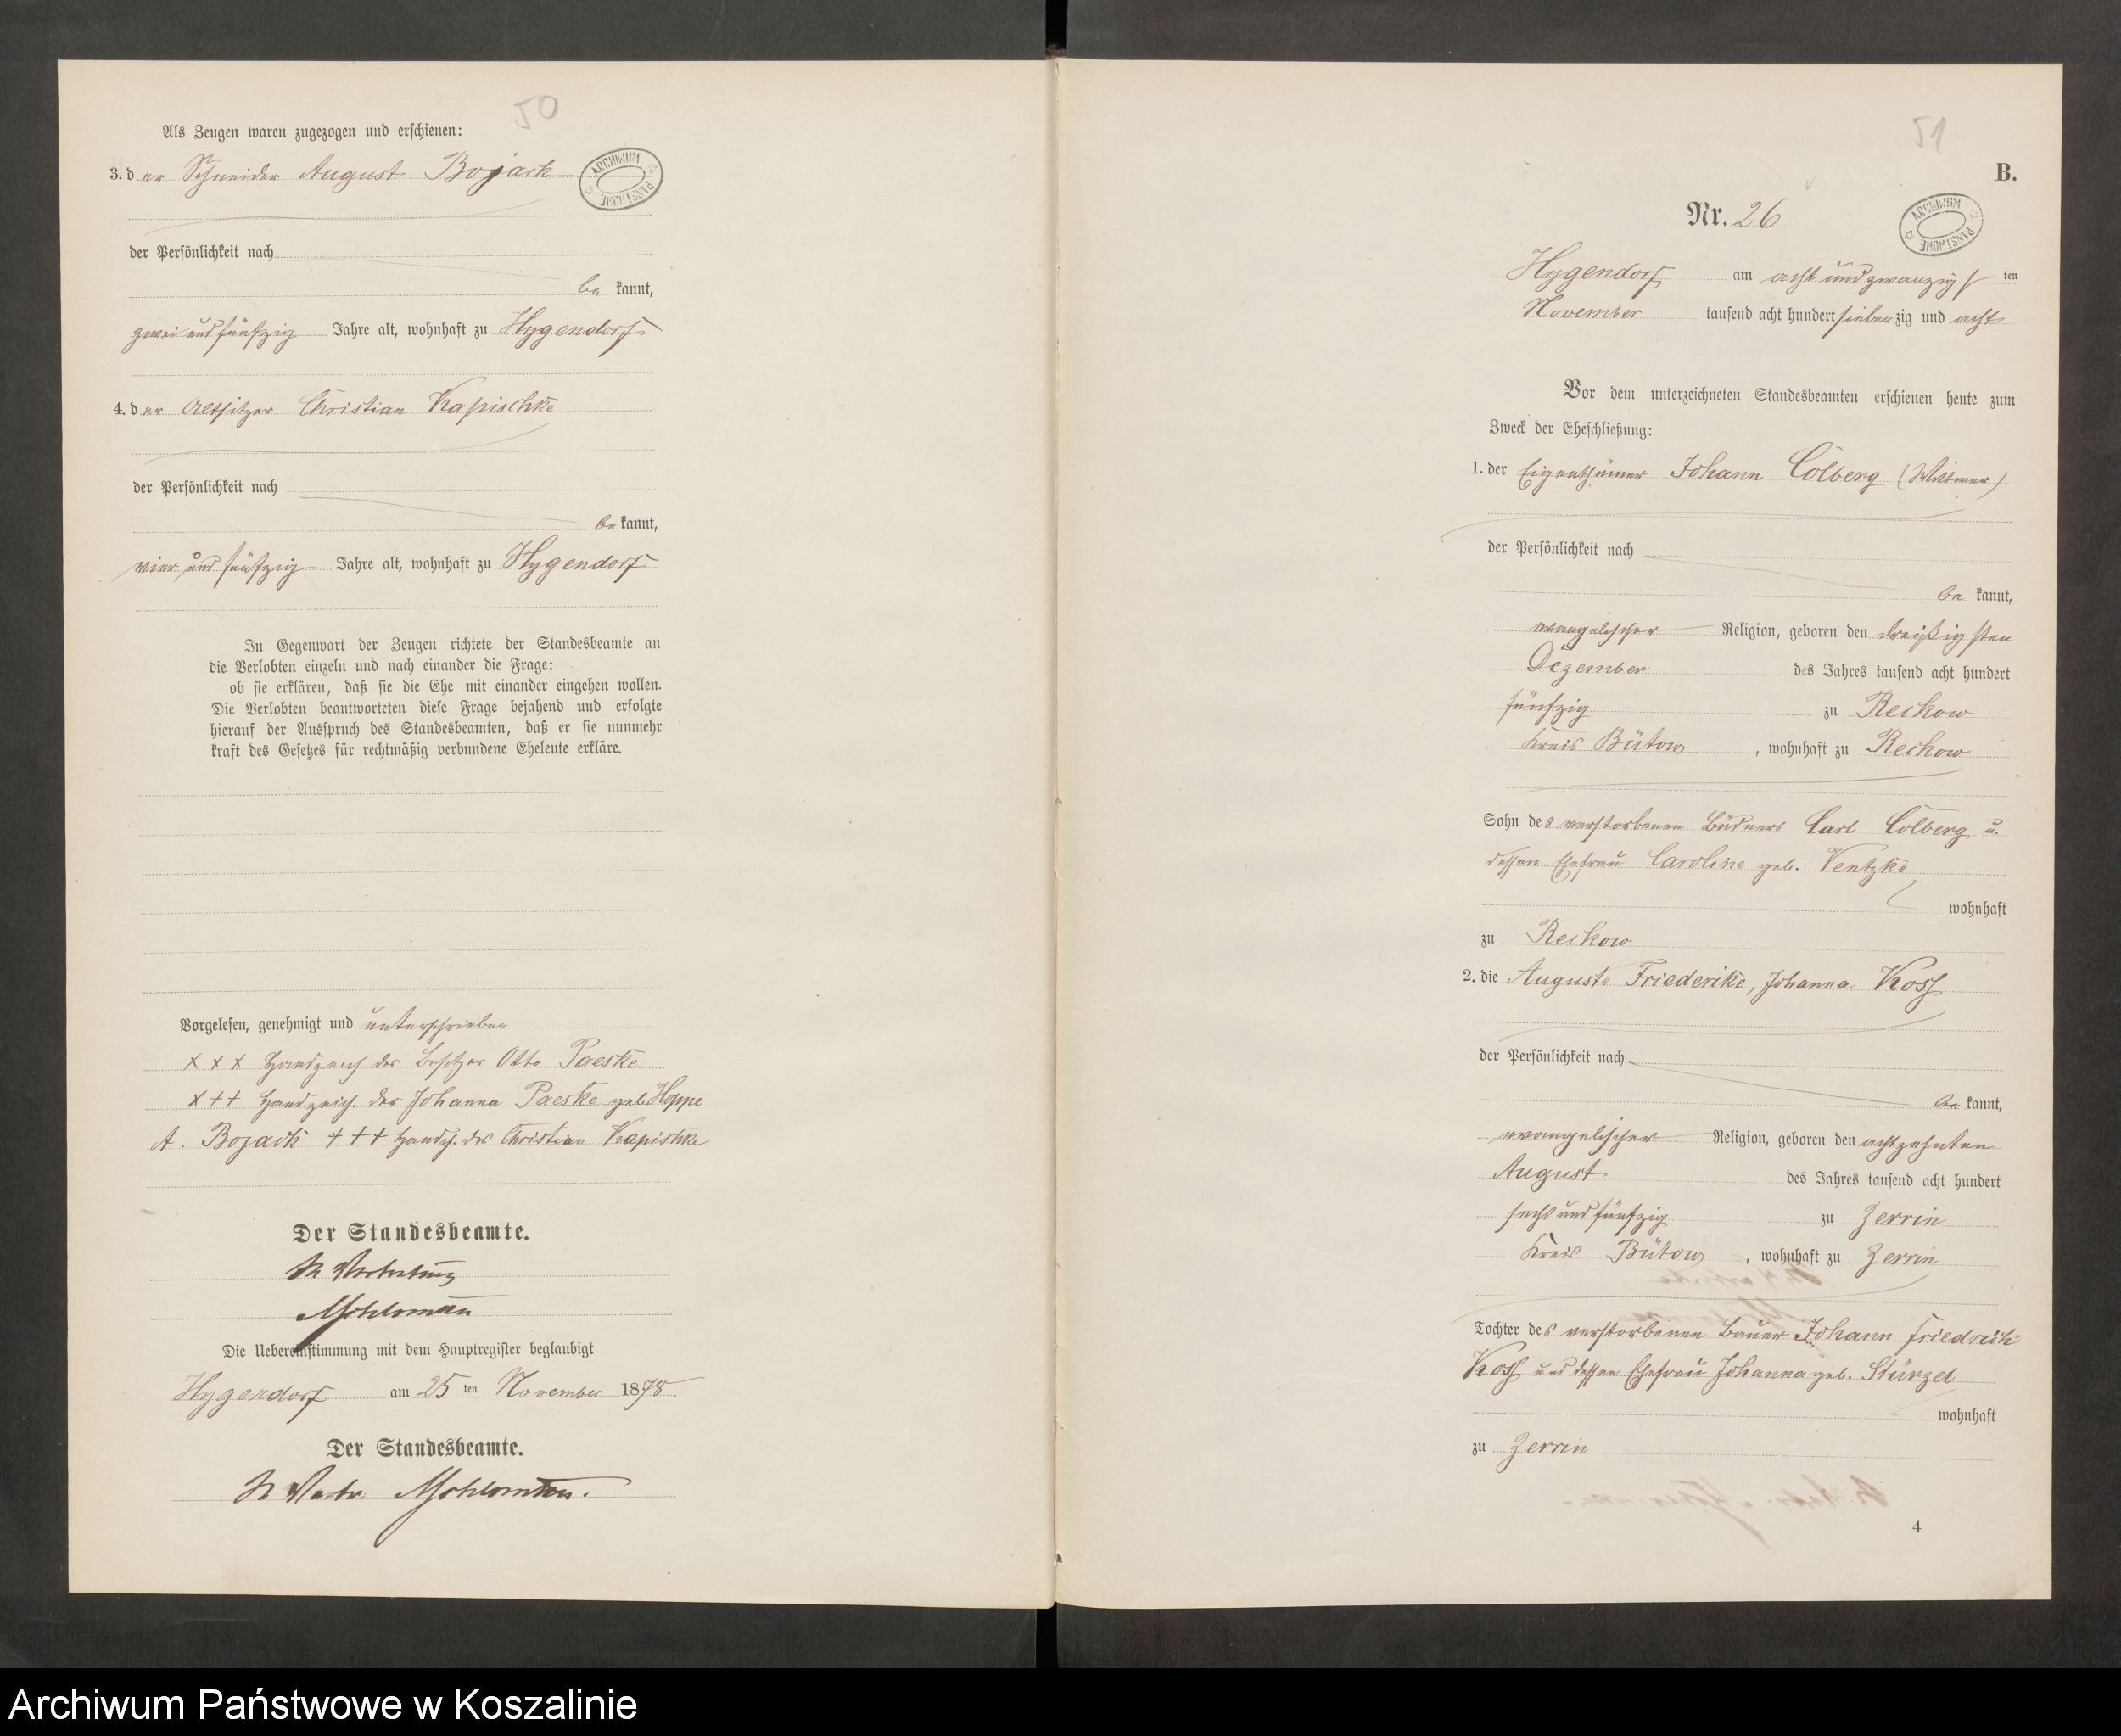 50
Als Zeugen waren zugezogen und erschienen:
3. der Schneider August Bojack
ARCHIWUM PAŃSTWOWE
der Persönlichkeit nach
be kannt,
zwei und fünfzig Jahre alt, wohnhaft zu Hygendorf
4. der Altsitzer Christian Kapischke
der Persönlichkeit nach
be kannt,
vier und fünfzig Jahre alt, wohnhaft zu Hygendorf
In Gegenwart der Zeugen richtete der Standesbeamte an
die Verlobten einzeln und nach einander die Frage:
ob sie erklären, daß sie die Ehe mit einander eingehen wollen.
Die Verlobten beantworteten diese Frage bejahend und erfolgte
hierauf der Ausspruch des Standesbeamten, daß er sie nunmehr
kraft des Gesetzes für rechtmäßig verbundene Eheleute erkläre.
Vorgelesen, genehmigt und unterschrieben
x x x Handzeich des Besitzer Otto Paeske
x + + Handzeich. der Johanna Paeske geb. Hoppe
A. Bojack + + + Handz. des Christian Kapischke
Der Standesbeamte.
In Vertretung
Die Uebereinstimmung mit dem Hauptregister beglaubigt
Hygendorf am 25 ten November 1878.
Der Standesbeamte.
In Vertr.
51
B.
Nr. 26
ARCHIWUM PAŃSTWOWE
Hygendorf am acht und zwanzigs ten
November tausend acht hundert siebenzig und acht
Vor dem unterzeichneten Standesbeamten erschienen heute zum
Zweck der Eheschließung:
1. der Eigenthümer Johann Colberg (Wittwer)
der Persönlichkeit nach
be kannt,
evangelischer Religion, geboren den dreißigsten
Dezember des Jahres tausend acht hundert
fünfzig zu Reckow
Kreis Bütow, wohnhaft zu Reckow
Sohn des verstorbenen Büdners Carl Colberg u.
dessen Ehefrau Caroline geb. Ventzke
wohnhaft
zu Reckow
2. die Auguste Friederike, Johanna Koss
der Persönlichkeit nach
be kannt,
evangelischer Religion, geboren den achtzehnten
August des Jahres tausend acht hundert
sechs und fünfzig zu Zerrin
Kreis Bütow, wohnhaft zu Zerrin
Tochter des verstorbenen Bauer Johann Friedrich
Koss und dessen Ehefrau Johanna geb. Stürzel
wohnhaft
zu Zerrin
4
Archiwum Państwowe w Koszalinie